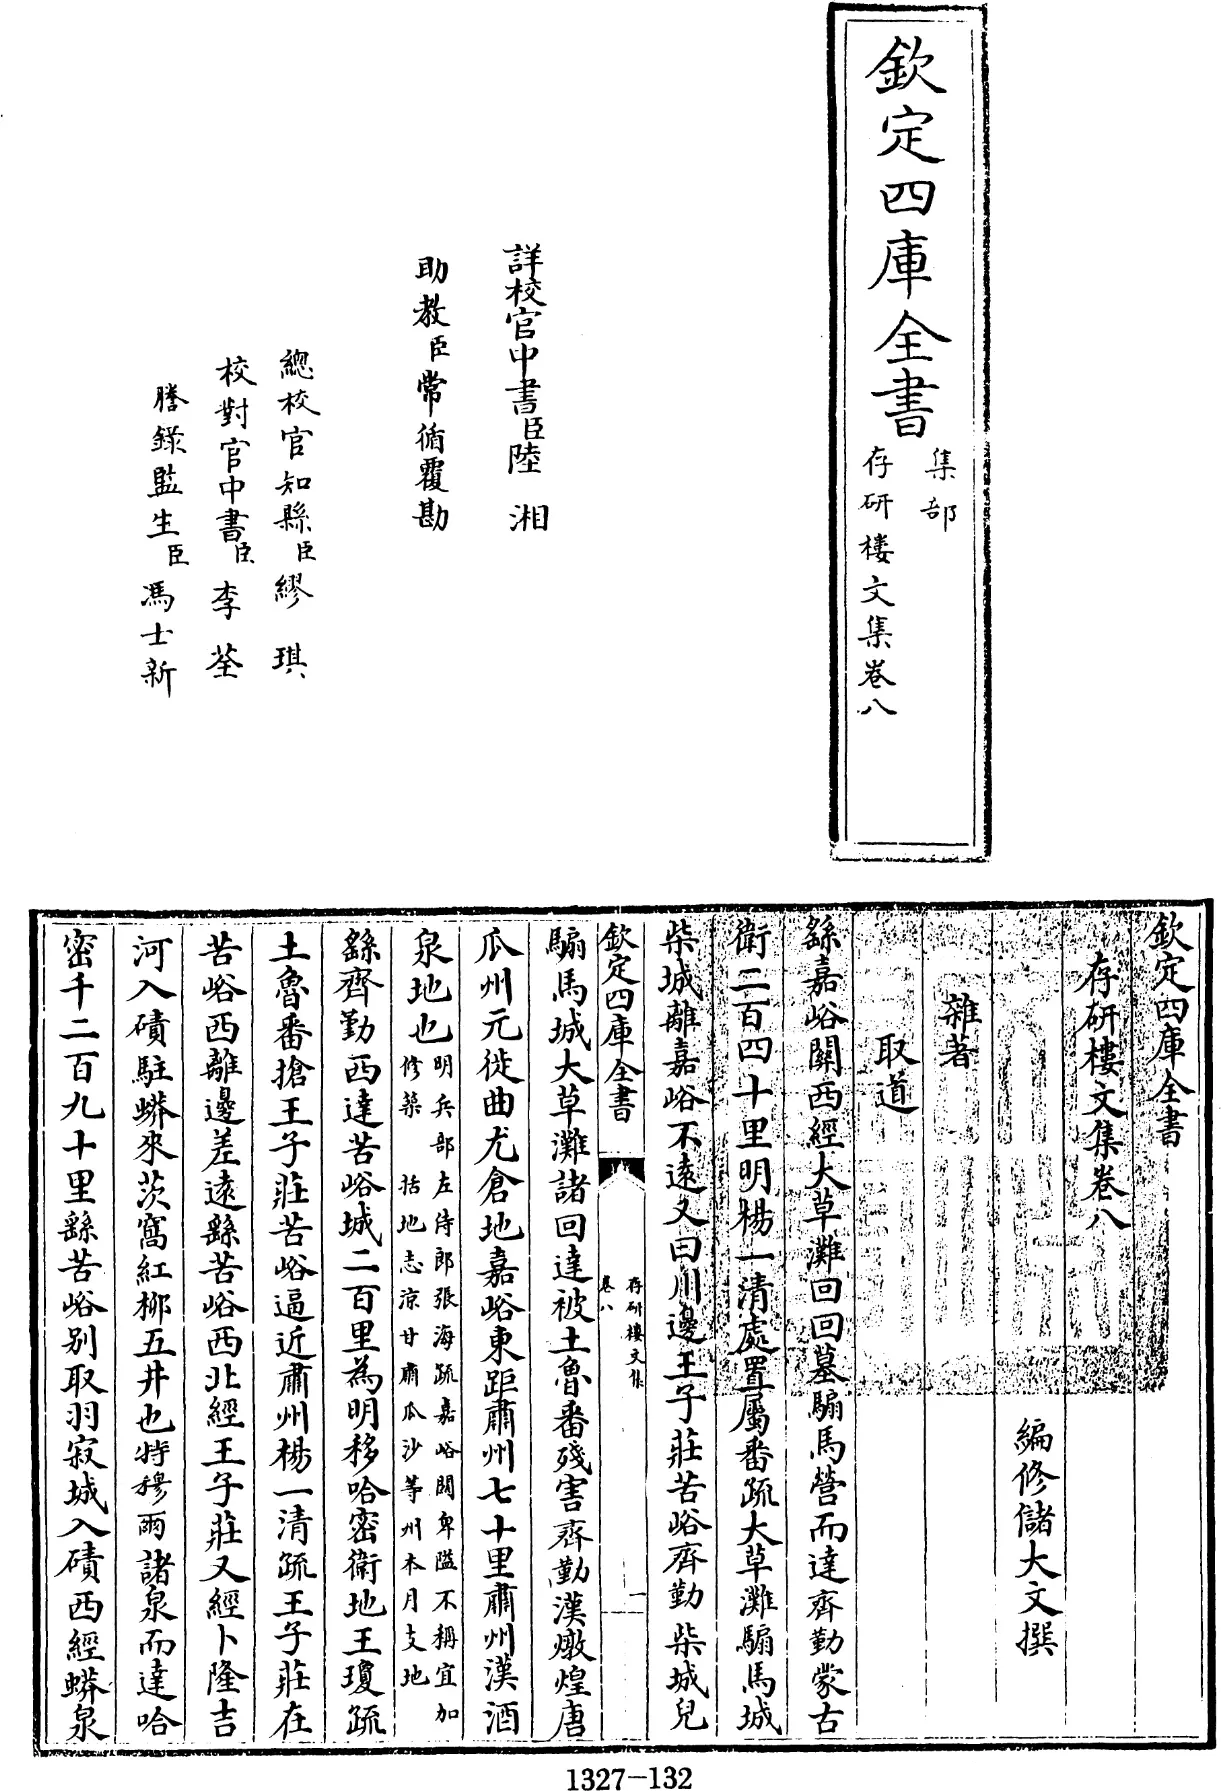 欽定四庫全書
集部
存研樓文集卷八
詳校官中書臣陸湘
助教臣常循覆勘
總校官知縣臣繆琪
校對官中書臣李荃
謄錄監生臣馮士新
欽定四庫全書
存研樓文集卷八
編修儲大文撰
雜著
取道
繇嘉峪關西經大草灘回回墓騸馬營而達齊勤蒙古
衛二百四十里明楊一清處置屬番疏大草灘騸馬城
柴城離嘉峪不遠又曰川邊王子莊苦峪齊勤柴城兒
欽定四庫全書
存研樓文集
卷八
一
騸馬城大草灘諸回達被土魯番殘害齊勤漢燉煌唐
瓜州元徙曲尤倉地嘉峪東距肅州七十里肅州漢酒
泉地也明兵部左侍郎張海疏嘉峪關卑隘不稱宜加
修築 括地志涼甘肅瓜沙等州本月支地
繇齊勤西達苦峪城二百里為明移哈密衛地王瓊疏
土魯番搶王子莊苦峪逼近肅州楊一清疏王子莊在
苦峪西離邊差遠繇苦峪西北經王子莊又經卜隆吉
河入磧駐蟒來茨窩紅柳五井也特穆爾諸泉而達哈
密千二百九十里繇苦峪别取羽寂城入磧西經蟒泉
1327-132